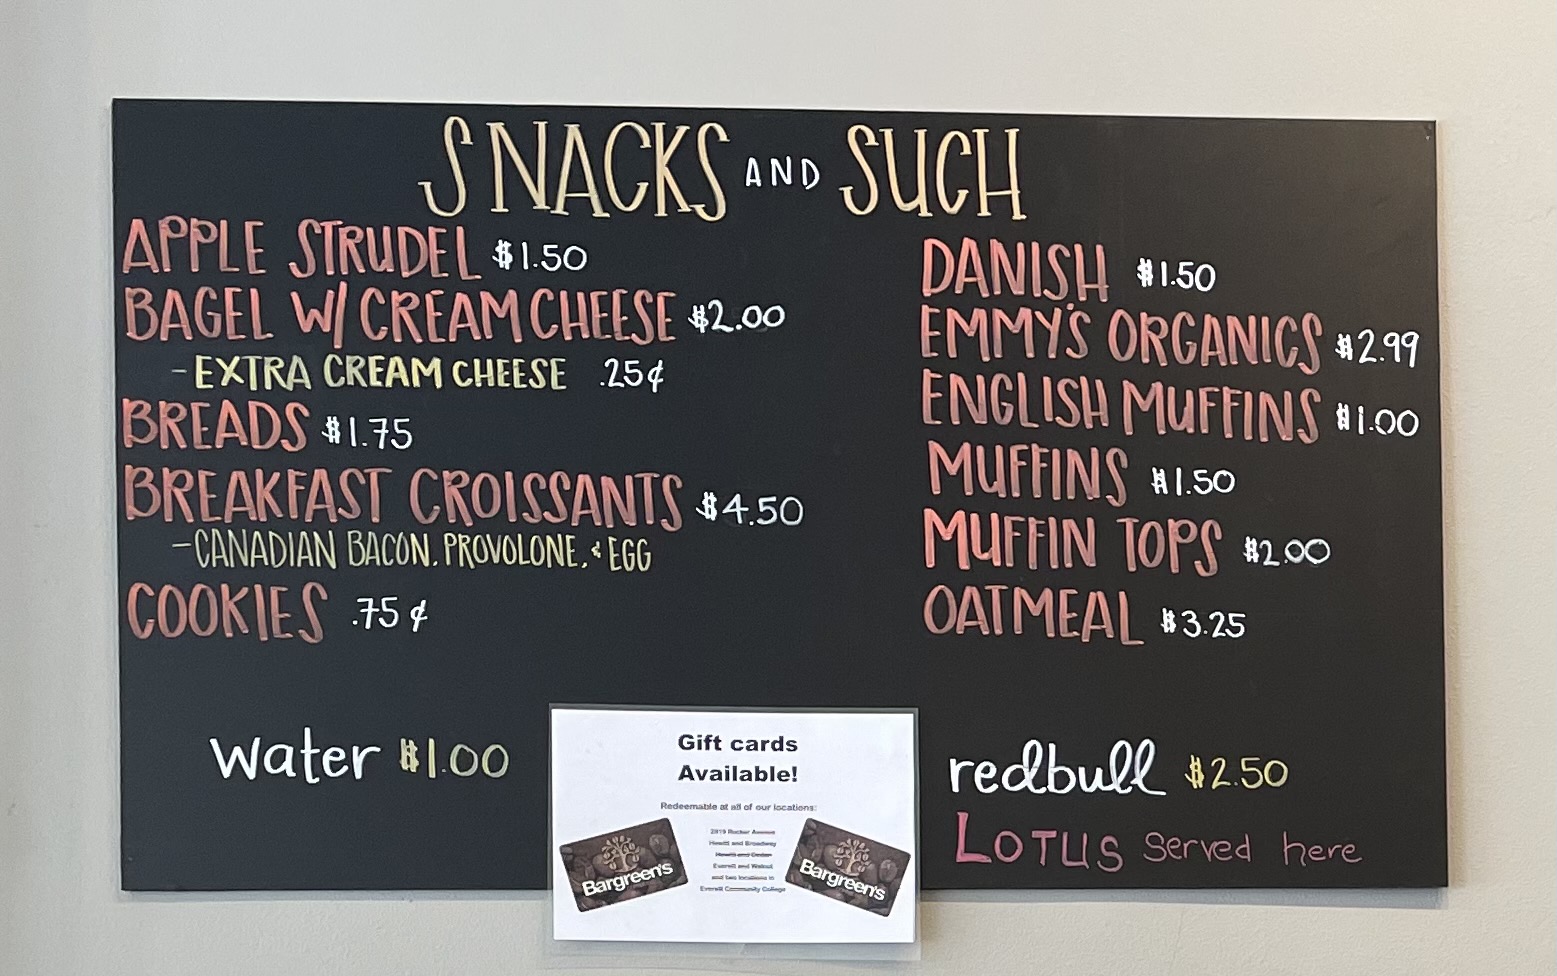 SNACKS AND SUCH
APPLE STRUDEL $1.50
BAGEL W/ CREAM CHEESE $2.00
- EXTRA CREAM CHEESE .25¢
BREADS $1.75
BREAKFAST CROISSANTS $4.50
- CANADIAN BACON, PROVOLONE, & EGG
COOKIES .75¢
DANISH $1.50
EMMY'S ORGANICS $2.99
ENGLISH MUFFINS $1.00
MUFFINS $1.50
MUFFIN TOPS $2.00
OATMEAL $3.25
water $1.00
Gift cards
Available!
Redeemable at all of our locations:
2919 Rucker Avenue
Hewitt and Broadway
Hewitt and Cedar
Everett and Walnut
and two locations in
Everett Community College
Bargreen's
Bargreen's
redbull $2.50
LOTUS served here